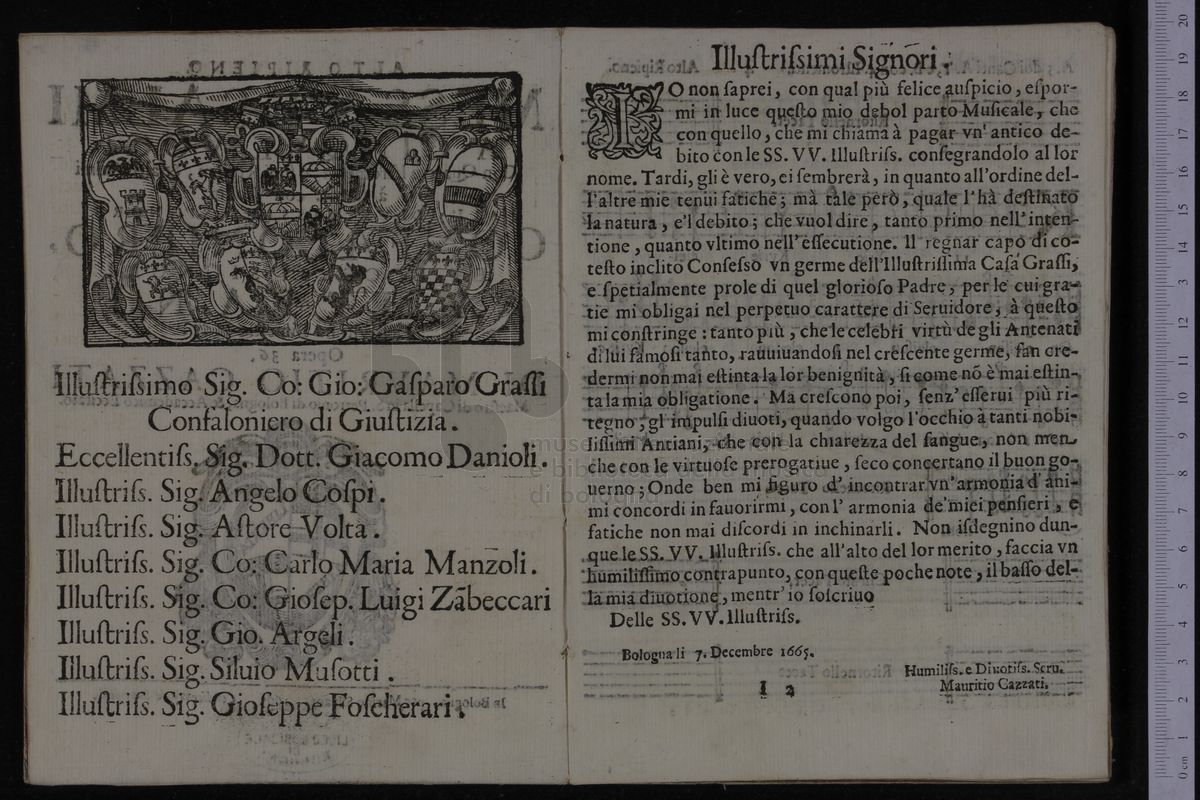 Illuſtriſsimo Sig. Co: Gio: Gaſparo Graſſi
Confaloniero di Giuſtizia.
Eccellentiſs. Sig. Dott. Giacomo Danioli.
Illuſtriſs. Sig. Angelo Coſpi.
Illuſtriſs. Sig. Aſtore Volta.
Illuſtriſs. Sig. Co: Carlo Maria Manzoli.
Illuſtriſs. Sig. Co: Gioſep. Luigi Zãbeccari
Illuſtriſs. Sig. Gio. Argeli.
Illuſtriſs. Sig. Siluio Muſotti.
Illuſtriſs. Sig. Gioſeppe Foſcherari.
Illuſtriſsimi Signori.
IO non ſaprei, con qual più felice auſpicio, eſpor-
mi in luce queſto mio debol parto Muſicale, che
con quello, che mi chiama à pagar vn' antico de-
bito con le SS. VV. Illuſtriſs. conſegrandolo al lor
nome. Tardi, gli è vero, ei ſembrerà, in quanto all'ordine del-
l'altre mie tenui fatiche; mà tale però, quale l'hà deſtinato
la natura, e'l debito; che vuol dire, tanto primo nell' inten-
tione, quanto vltimo nell'eſſecutione. Il regnar capo di co-
teſto inclito Conſeſso vn germe dell'Illuſtriſſima Caſa Graſſi,
e ſpetialmente prole di quel glorioſo Padre, per le cui gra-
tie mi obligai nel perpetuo carattere di Seruidore, à queſto
mi conſtringe: tanto più, che le celebri virtù de gli Antenati
di lui famoſi tanto, rauuiuandoſi nel creſcente germe, fan cre-
dermi non mai eſtinta la lor benignità, ſi come nõ è mai eſtin-
ta la mia obligatione. Ma creſcono poi, ſenz'eſſerui più ri-
tegno, gl'impulſi diuoti, quando volgo l'occhio à tanti nobi-
liſſimi Antiani, che con la chiarezza del ſangue, non men
che con le virtuoſe prerogatiue, ſeco concertano il buon go-
uerno; Onde ben mi figuro d' incontrar vn'armonia d' ani-
mi concordi in fauorirmi, con l' armonia de'miei penſieri, e
fatiche non mai diſcordi in inchinarli. Non iſdegnino dun-
que le SS. VV. Illuſtriſs. che all'alto del lor merito, faccia vn
humiliſſimo contrapunto, con queſte poche note, il baſſo del-
la mia diuotione, mentr' io ſoſcriuo
Delle SS. VV. Illuſtriſs.
Bologna li 7. Decembre 1665.
Humiliſs. e Diuotiſs. Seru.
Mauritio Cazzati.
I 2